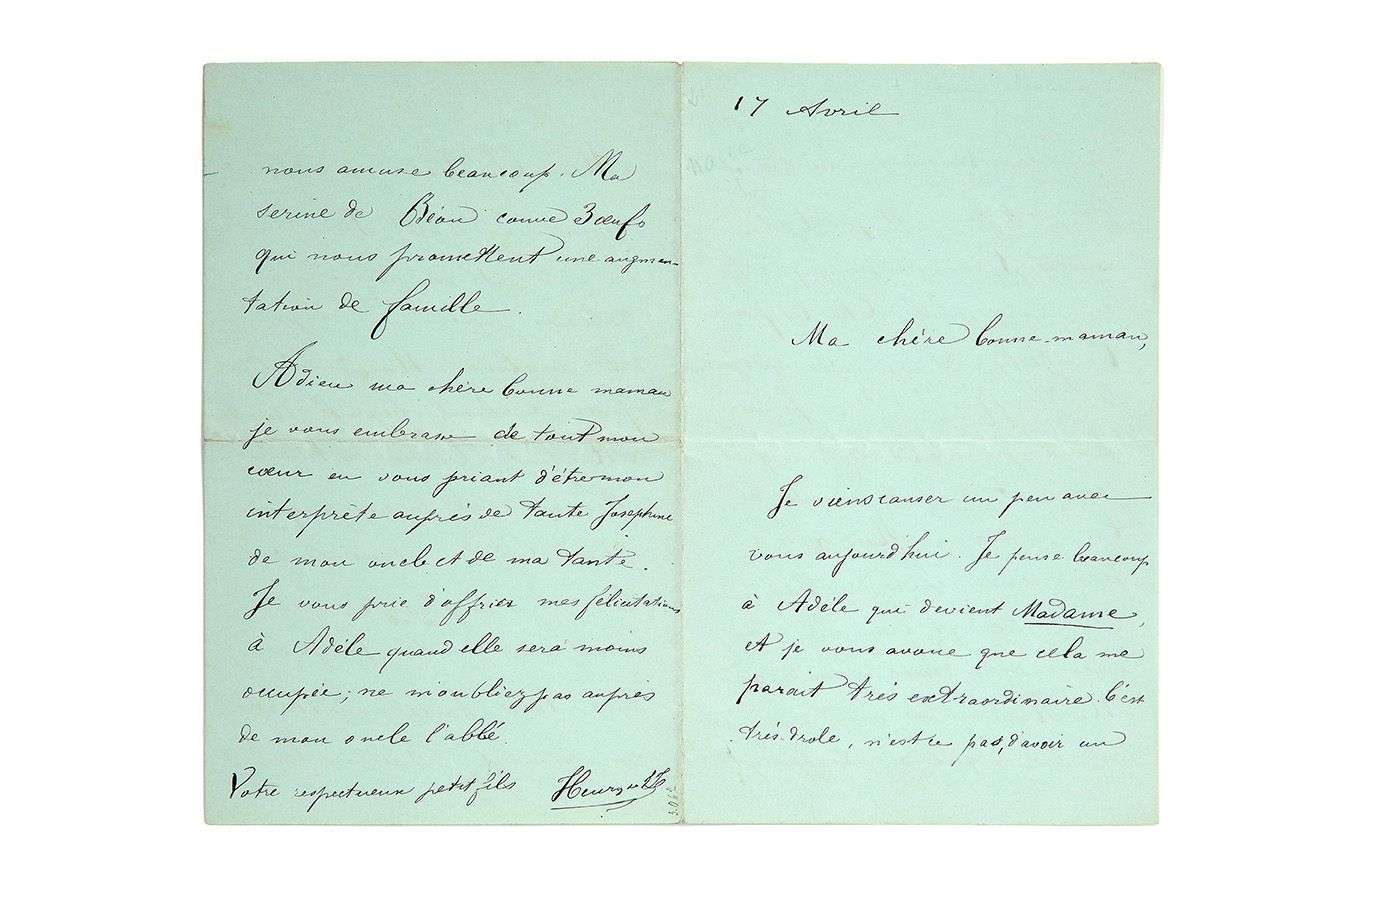 17 Avril
Ma chère bonne-maman,
Je viens causer un peu avec
vous aujourd'hui. Je pense beaucoup
à Adèle qui devient Madame,
et je vous avoue que cela me
parait très extraordinaire. C'est
très drole, n'est ce pas, d'avoir un
nous amuse beaucoup. Ma
serine de Béon couve 3 œufs
qui nous promettent une augmen-
tation de famille.
Adieu ma chère bonne maman
je vous embrasse de tout mon
cœur en vous priant d'être mon
interprète auprès de tante Josephine
de mon oncle et de ma tante.
Je vous prie d'offrir mes félicitations
à Adèle quand elle sera moins
occupée; ne m'oubliez pas auprès
de mon oncle l'abbé.
Votre respectueux petit fils